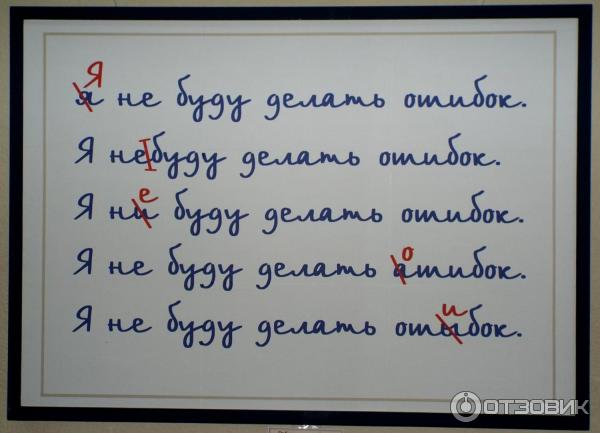 Я
я не буду делать ошибок.
Я небуду делать ошибок.
е
Я ни буду делать ошибок.
о
Я не буду делать ашибок.
и
Я не буду делать ошыбок.
ОТЗОВИК